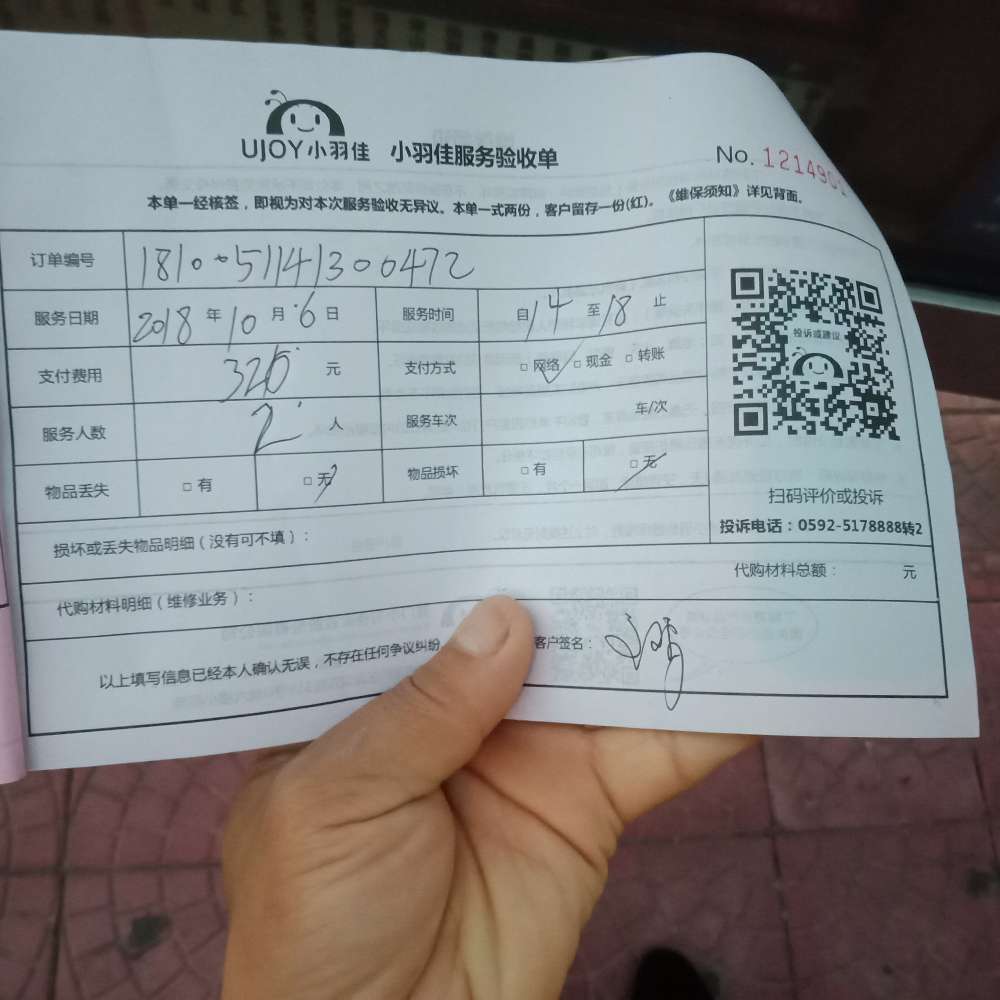 UJOY小羽佳 小羽佳服务验收单 No. 121490
本单一经核签，即视为对本次服务验收无异议。本单一式两份，客户留存一份(红)。《维保须知》详见背面。
订单编号 1810051141300472
服务日期 2018 年 10 月 6 日 服务时间 自 14 至 18 止
支付费用 320 元 支付方式 □ 网络 □ 现金 □ 转账
服务人数 2 人 服务车次 车/次
物品丢失 □ 有 □ 无 物品损坏 □ 有 □ 无
投诉或建议
扫码评价或投诉
投诉电话：0592-5178888转2
损坏或丢失物品明细（没有可不填）：
代购材料明细（维修业务）： 代购材料总额： 元
以上填写信息已经本人确认无误，不存在任何争议纠纷 客户签名：